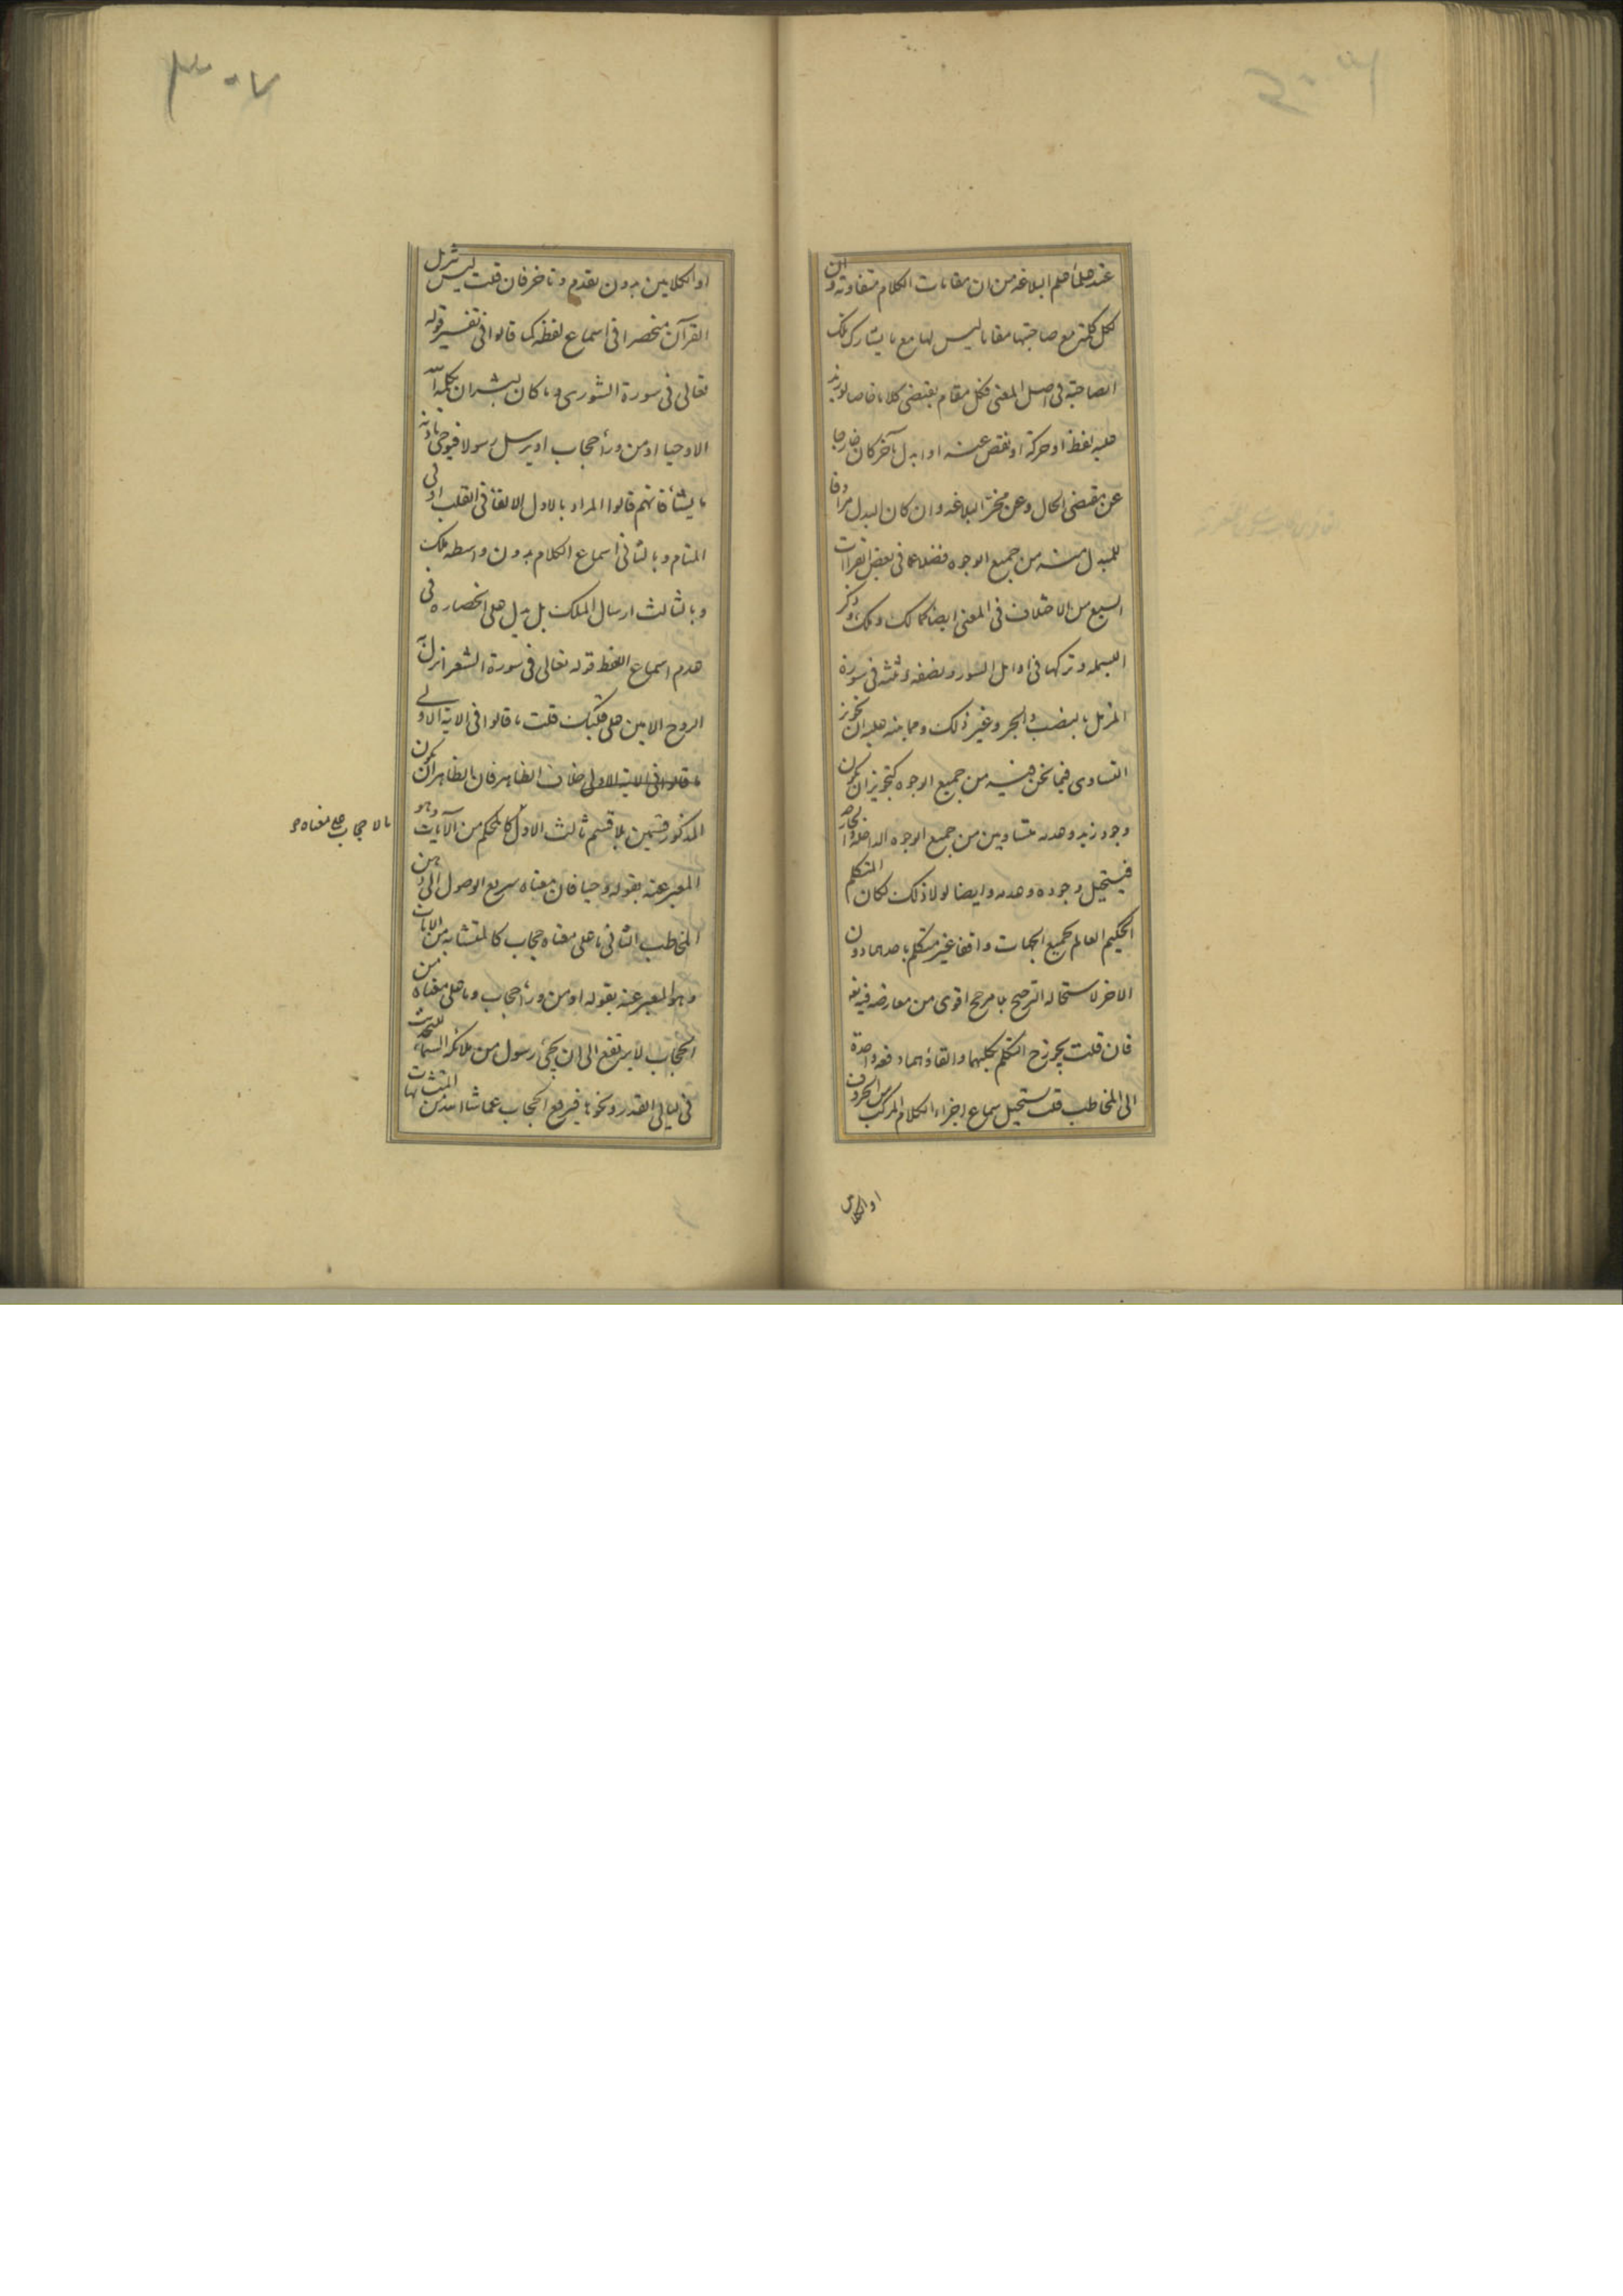 عند علماء علم البلاغه من ان مقامات الكلام متفاوته وان
لكل كلمة مع صاحبتها مقاما ليس لها مع ما يشارك تلك
الصاحبة فى اصل المعنى فكل مقام يقتضى كلاما خاصا لو زيد
عليه لفظ او حركة او نقص عنه او ابدل بآخر كان خارجا
عن مقتضى الحال وعن البلاغه وان كان البدل مرادفا
للمبدل منه من جميع الوجوه فضلا عما فى بعض القراآت
السبع من الاختلاف فى المعنى ايضا كمالك وملك وذكر
البسمله وتركها فى اوايل السور ونصفه وثلثه فى سورة
المزمل بالنصب والجر وغير ذلك ومما ينبه عليه ان تجويز
التساوى فيما نحن فيه من جميع الوجوه كتجويز ان يكون
وجود زيد وعدمه متساويين من جميع الوجوه الداخلة والخارجه
فيستحيل وجوده وعدمه وايضا لولا ذلك لكان المتكلم
الحكيم العالم بجميع الجهات واقفا غير متكلم باحدهما دون
الاخر لاستحاله الترجيح بلا مرجح اقوى من معارضه فيه
فان قلت يجوز ح التكلم بكليهما والقاؤهما دفعه واحدة
الى المخاطب قلت يستحيل سماع اجزاء الكلام المركب من الحروف
او الكلامين
٣٠٧
او الكلامين بدون تقدم وتاخر فان قلت ليس تنزيل
القرآن منحصرا فى اسماع لفظه كما قالوا فى تفسير قوله
تعالى فى سورة الشورى وما كان لبشر ان يكلمه الله
الا وحيا او من وراء حجاب او يرسل رسولا فيوحى باذنه
ما يشاء فانهم قالوا المراد بالاول الالقاء فى القلب او فى
المنام وبالثانى اسماع الكلام بدون واسطه ملك
وبالثالث ارسال الملك بل يدل على انحصاره فى
عدم اسماع اللفظ قوله تعالى فى سورة الشعرا نزل به
الروح الامين على قلبك قلت ما قالوا فى الاية الاولى
ما قالوا فى الاية الاولى خلاف الظاهر فان الظاهر ان يكون
المذكور قسمين بلا قسم ثالث الاول كالمحكم من الآيات وهو
ما لا حجاب على معناه و
المعبر عنه بقوله وحيا فان معناه سريع الوصول الى ذهن
المخاطب الثانى ما على معناه حجاب كالمتشابه من الايات
وهو المعبر عنه بقوله او من وراء حجاب وما على معناه من
الحجاب لا يرتفع الى ان يجئ رسول من ملائكة السماء للتحديث
فى ليالى القدر ونحوها فيرفع الحجاب عما شاء الله من المتشابهات